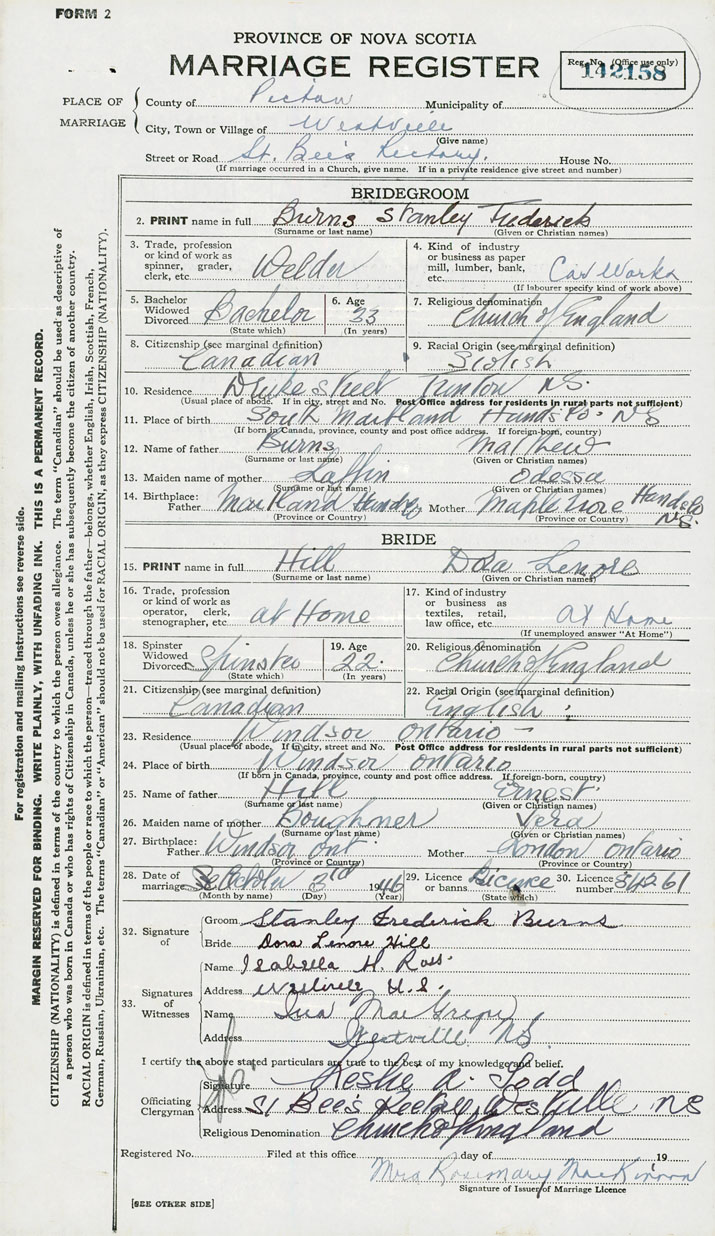 FORM 2
PROVINCE OF NOVA SCOTIA
MARRIAGE REGISTER
Reg. No. (Office use only)
142158
PLACE OF MARRIAGE
County of Pictou Municipality of
City, Town or Village of Westville
(Give name)
Street or Road St. Bee's Rectory. House No.
(If marriage occurred in a Church, give name. If in a private residence give street and number)
BRIDEGROOM
2. PRINT name in full Burns Stanley Frederick
(Surname or last name) (Given or Christian names)
3. Trade, profession or kind of work as spinner, grader, clerk, etc. Welder
4. Kind of industry or business as paper mill, lumber, bank, etc. Car Works
(If labourer specify kind of work above)
5. Bachelor Widowed Divorced Bachelor
(State which)
6. Age 33
(In years)
7. Religious denomination Church of England
8. Citizenship (see marginal definition) Canadian
9. Racial Origin (see marginal definition) Scotish
10. Residence Drukes Street Trenton N.S.
(Usual place of abode. If in city, street and No. Post Office address for residents in rural parts not sufficient)
11. Place of birth South Maitland Hands Co. NS
(If born in Canada, province, county and post office address. If foreign-born, country)
12. Name of father Burns Mathew
(Surname or last name) (Given or Christian names)
13. Maiden name of mother Laffin Odessa
(Surname or last name) (Given or Christian names)
14. Birthplace: Father Maitland Mother Maple Hands Co N.S.
(Province or Country) (Province or Country)
BRIDE
15. PRINT name in full Hill Dora Lenore
(Surname or last name) (Given or Christian names)
16. Trade, profession or kind of work as operator, clerk, stenographer, etc. at Home
17. Kind of industry or business as textiles, retail, law office, etc. at Home
(If unemployed answer "At Home")
18. Spinster Widowed Divorced Spinster
(State which)
19. Age 22.
(In years)
20. Religious denomination Church of England
21. Citizenship (see marginal definition) Canadian
22. Racial Origin (see marginal definition) English
23. Residence Windsor ontario
(Usual place of abode. If in city, street and No. Post Office address for residents in rural parts not sufficient)
24. Place of birth Windsor ontario
(If born in Canada, province, county and post office address. If foreign-born, country)
25. Name of father Hill Ernest
(Surname or last name) (Given or Christian names)
26. Maiden name of mother Boughner Vera
(Surname or last name) (Given or Christian names)
27. Birthplace: Father Windsor ont. Mother London ontario
(Province or Country) (Province or Country)
28. Date of marriage 3rd 1946
(Month by name) (Day) (Year)
29. Licence or banns. Licence
(State which)
30. Licence number 84261
32. Signature of
Groom Stanley Frederick Burns
Bride Dora Lenore Hill
33. Signatures of Witnesses
Name Isabella H. Ross.
Address Westville N.S.
Name MacGregor
Address Westville NS.
I certify the above stated particulars are true to the best of my knowledge and belief.
Officiating Clergyman
Signature Leslie A. Todd
Address St Bee's Rectory Westville NS
Religious Denomination Church of England
Registered No. Filed at this office day of 19
Mrs Rosemary MacKinnon
Signature of Issuer of Marriage Licence
[SEE OTHER SIDE]
For registration and mailing instructions see reverse side.
MARGIN RESERVED FOR BINDING. WRITE PLAINLY, WITH UNFADING INK. THIS IS A PERMANENT RECORD.
CITIZENSHIP (NATIONALITY) is defined in terms of the country to which the person owes allegiance. The term "Canadian" should be used as descriptive of
a person who was born in Canada or who has rights of Citizenship in Canada, unless he or she has subsequently become the citizen of another country.
RACIAL ORIGIN is defined in terms of the people or race to which the person—traced through the father—belongs, whether English, Irish, Scottish, French,
German, Russian, Ukrainian, etc. The terms "Canadian" or "American" should not be used for RACIAL ORIGIN, as they express CITIZENSHIP (NATIONALITY).